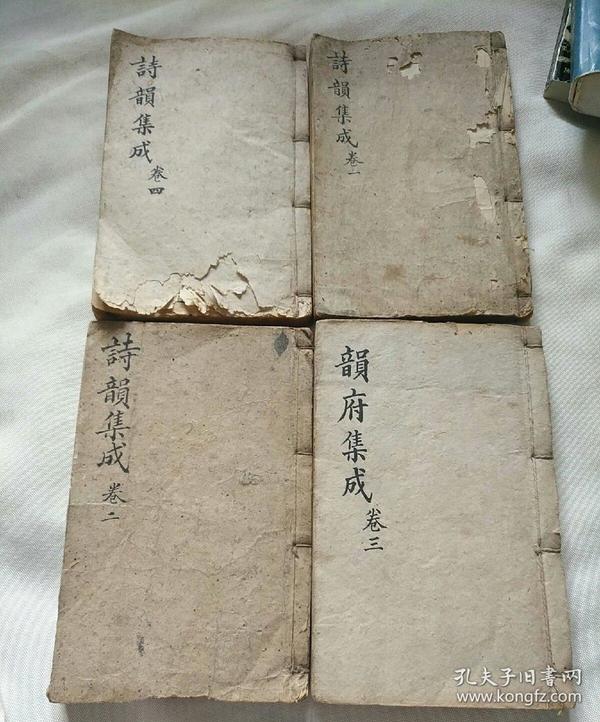 詩韻集成
卷四
詩韻集成
卷一
詩韻集成
卷二
韻府集成
卷三
孔夫子旧书网
www.kongfz.com